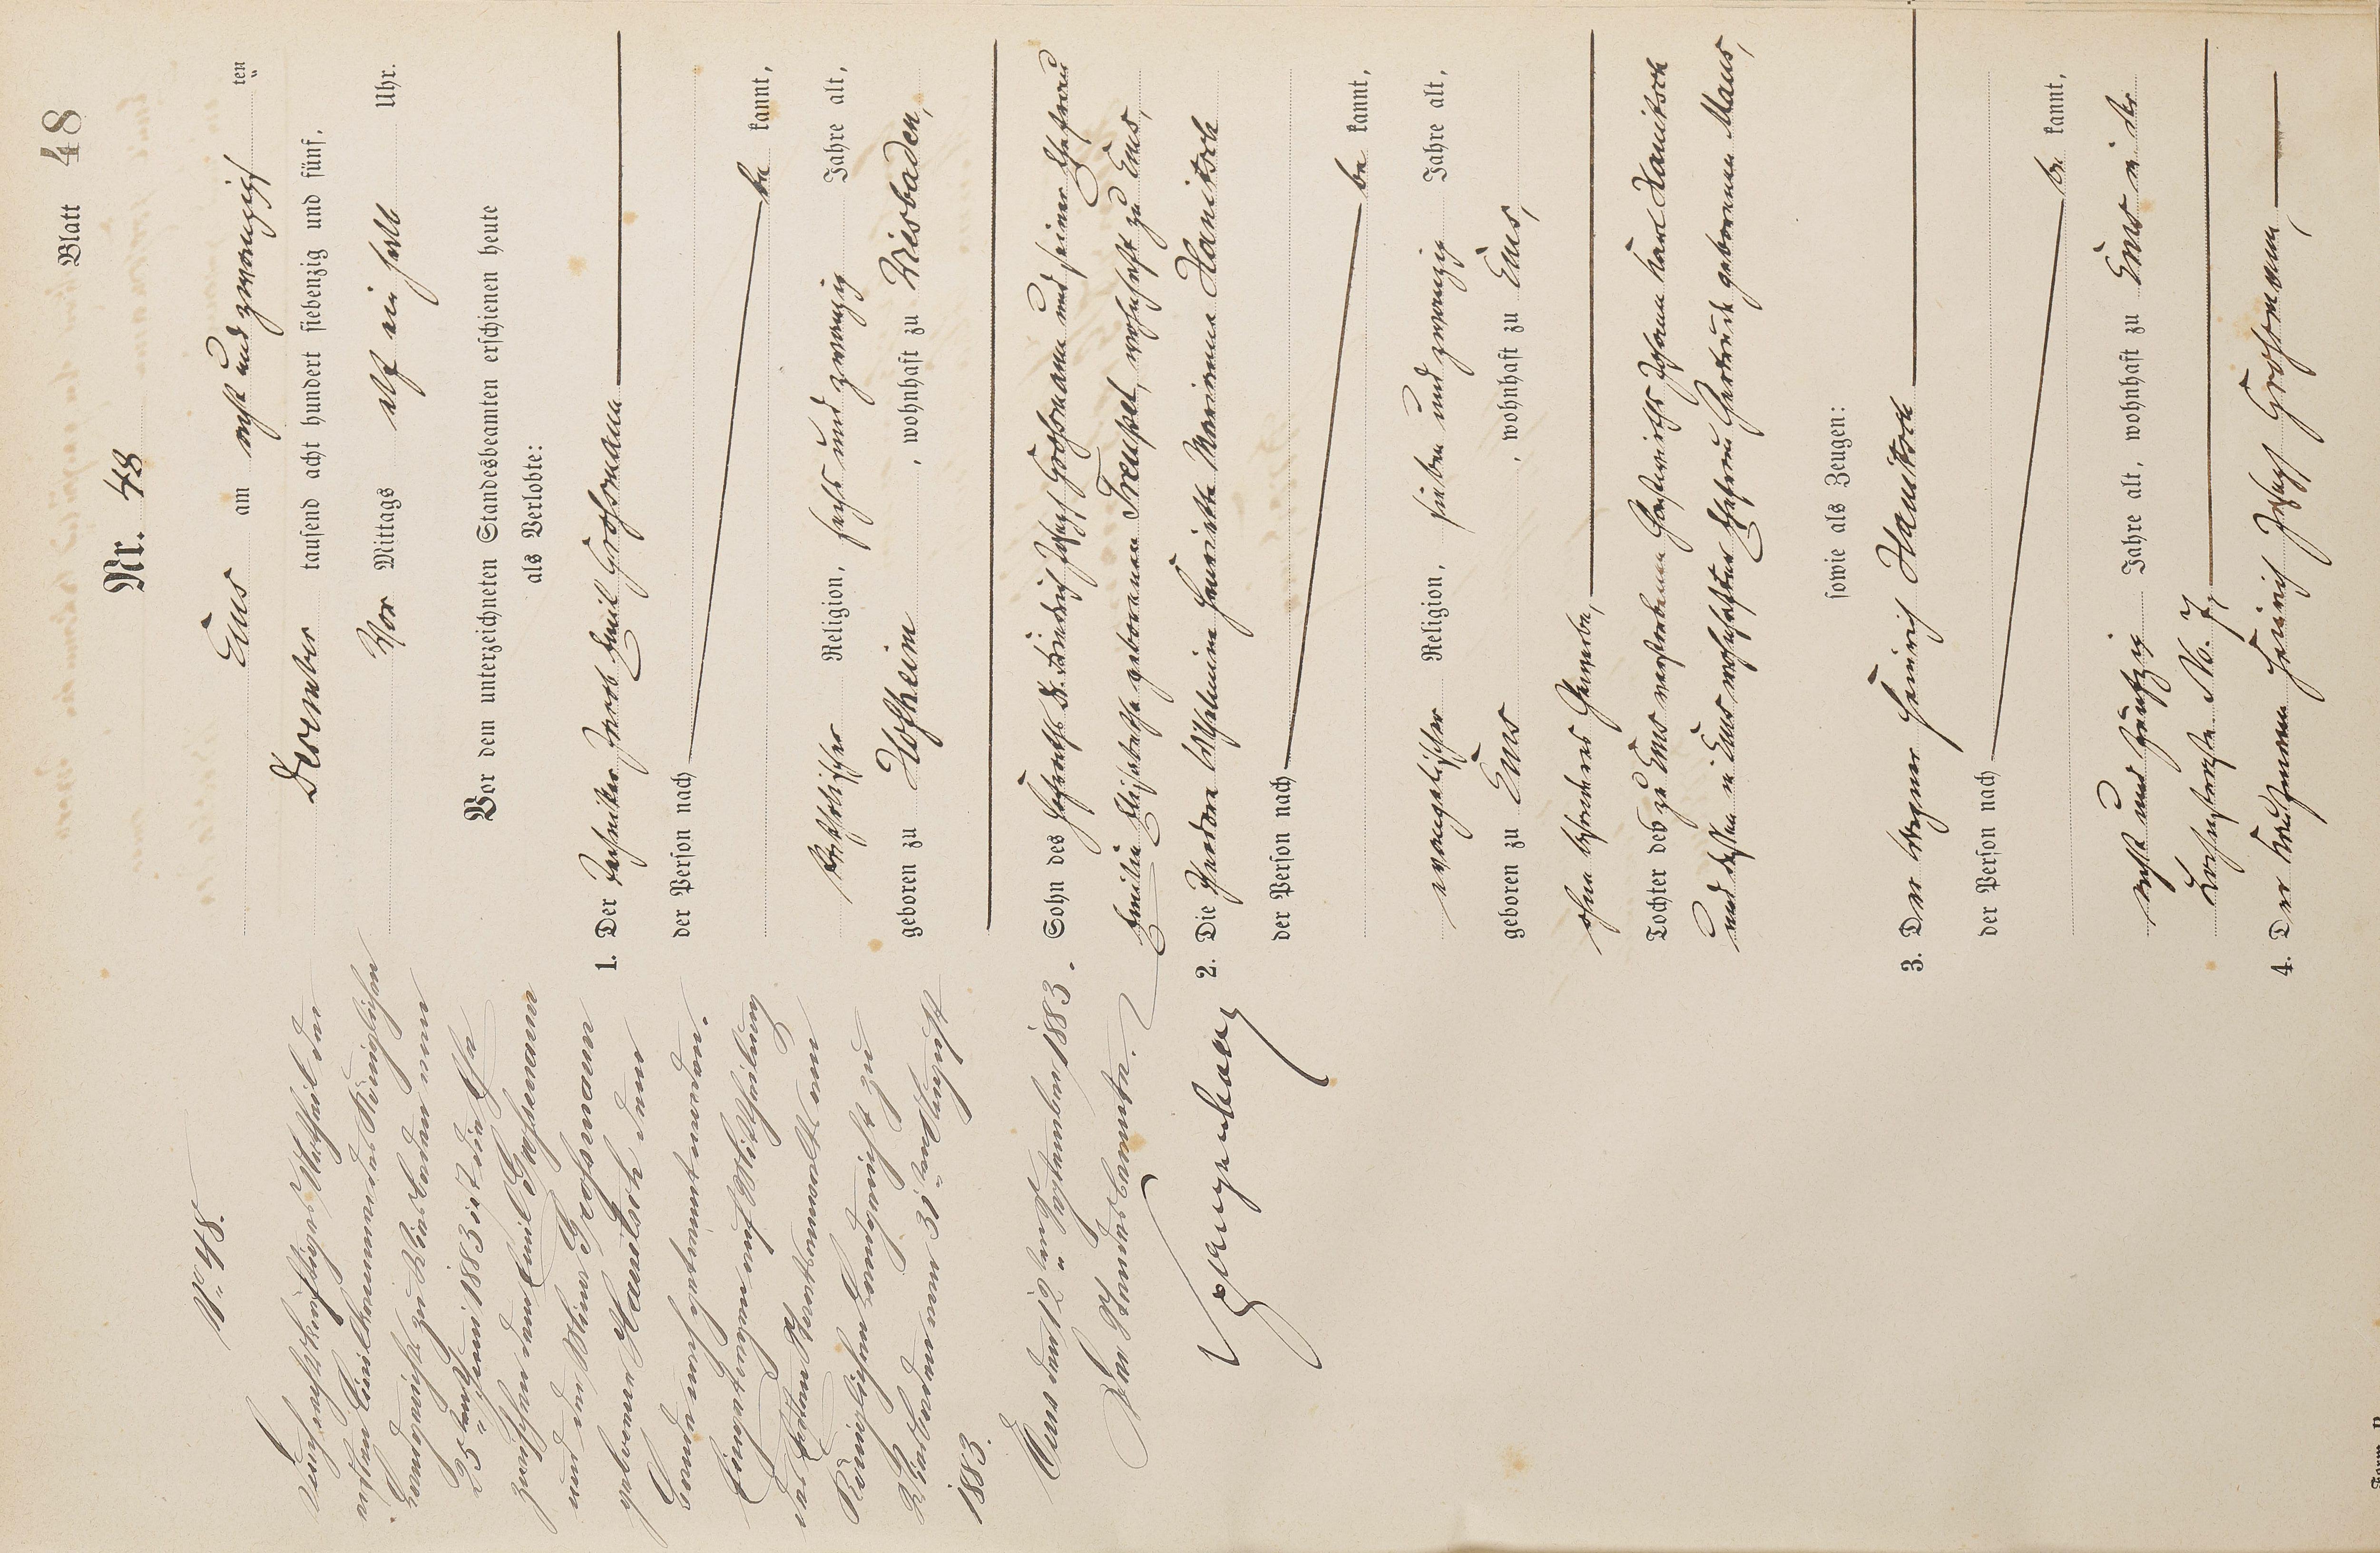 Blatt 48
Nr. 48
Ems am acht und zwanzigsten
Dezember tausend acht hundert siebenzig und fünf,
Vor Mittags elf ein halb Uhr.
Vor dem unterzeichneten Standesbeamten erschienen heute
als Verlobte:
1. Der Techniker Jacob Emil Großmann
der Person nach
be kannt,
katholischer Religion, sechs und zwanzig Jahre alt,
geboren zu Hofheim, wohnhaft zu Wiesbaden,
Sohn des Friedrich Joseph Großmann und seiner Ehefrau
Emilie Elisabetha geborenen Treupel, wohnhaft zu Ems,
2. Die Theodora Wilhelmine Henriette Marianna Hanitsch
der Person nach
be kannt,
evangelischer Religion, sieben und zwanzig Jahre alt,
geboren zu Ems, wohnhaft zu Ems,
ohne besonderes Gewerbe,
Tochter des zu Ems verstorbenen Gastwirths Johann Karl Hanitsch
und dessen in Ems wohnhaften Ehefrau Gertrude geborenen Maus,
sowie als Zeugen:
3. Der Wagner Heinrich Hanitsch
der Person nach
be kannt,
acht und fünfzig Jahre alt, wohnhaft zu Ems in der
No. 7,
4. Der Kaufmann Heinrich Joseph Großmann,
No. 48.
Durch rechtskräftiges Urtheil der
ersten Civilkammer des Königlichen
Landgerichts zu Wiesbaden vom
25ten Juni 1883 ist die Ehe
zwischen dem Emil Großmann
und der Minna Großmann
geborenen Hanitsch dem
Bande nach getrennt worden.
Eingetragen auf Mittheilung
des Ersten Staatsanwalts am
Königlichen Landgericht zu
Wiesbaden vom 31ten August
1883.
Ems den 12ten September 1883.
Der Standesbeamte.
Spangenberg